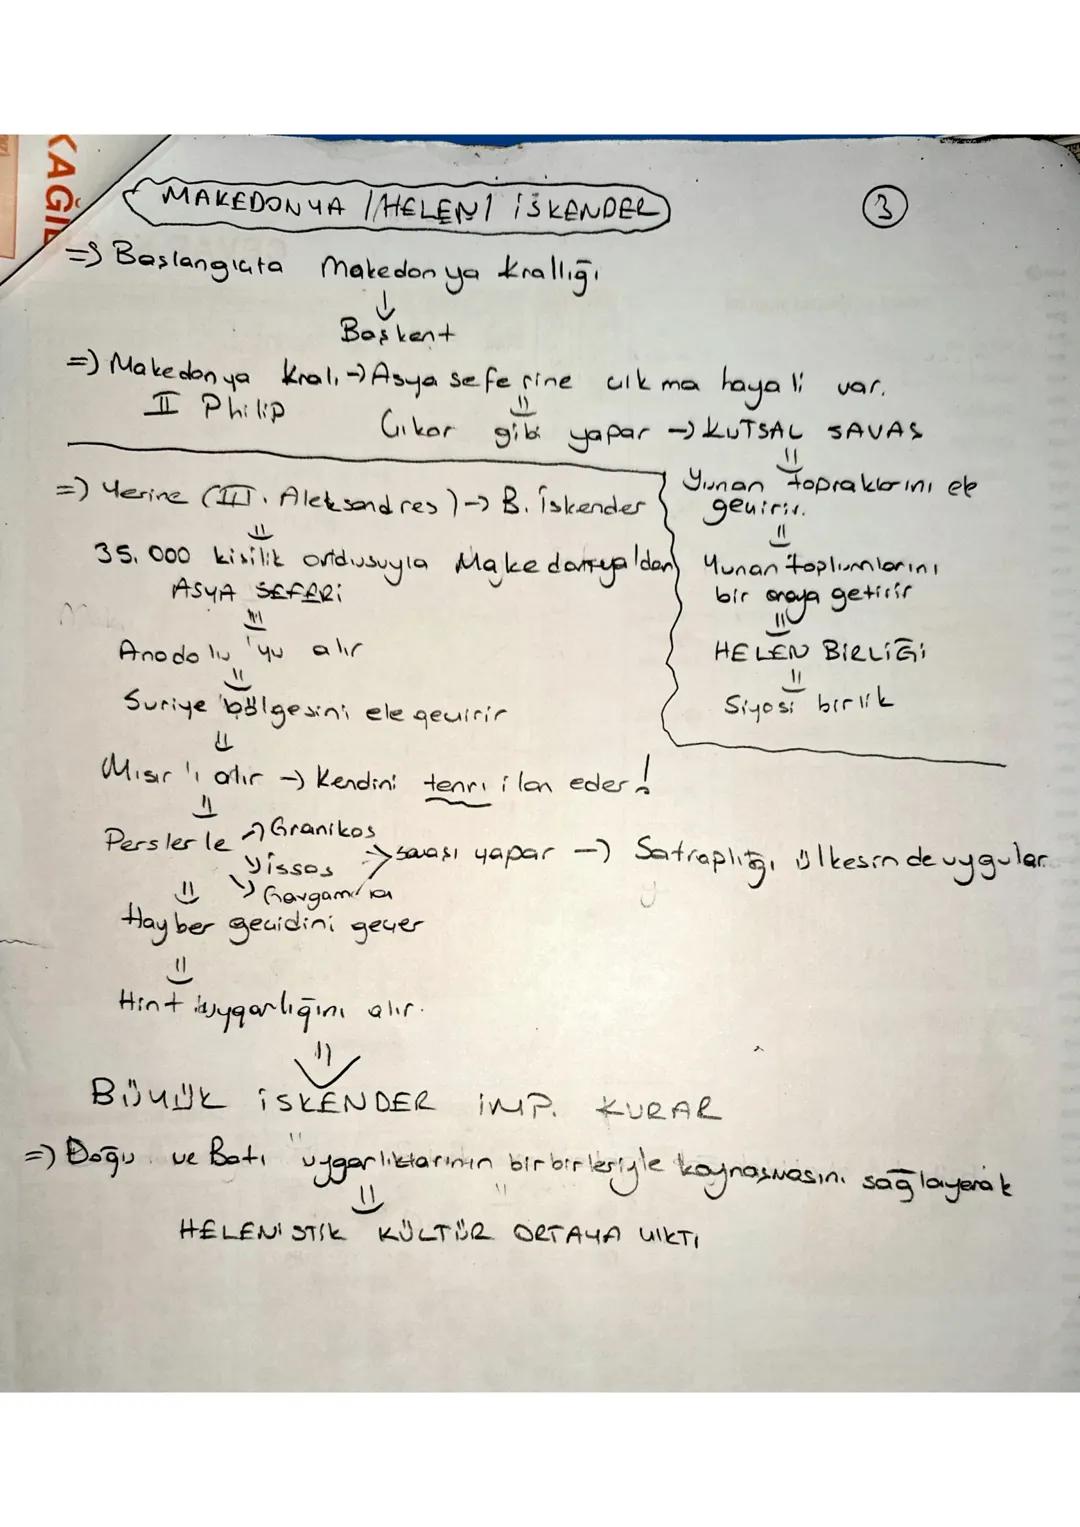 KAĞI
MAKEDONYA / HELEN / İSKENDER
3
=> Başlangıçta Makedonya Krallığı
Başkent
=> Makedonya Kralı -> Asya seferine çıkma hayali var.
II Philip
Çıkar gibi yapar -> KUTSAL SAVAŞ
Yunan topraklarını ele
geçirir.
Yunan toplumlarını
bir araya getirir
HELEN BİRLİĞİ
Siyasi birlik
=> Yerine (III. Aleksandres) -> B. İskender
35.000 kişilik ordusuyla Makedonya'dan
ASYA SEFERİ
Anadolu'yu alır
Suriye bölgesini ele geçirir
Mısır'ı alır -> Kendini tanrı ilan eder!
Perslerle -> Granikos
İssos savaşı yapar -> Satraplığı ülkesinde uygular
Gavgamela
Hayber geçidini geçer
Hint uygarlığını alır.
BÜYÜK İSKENDER İMP. KURAR
=> Doğu ve Batı uygarlıklarının birbirleriyle kaynaşmasını sağlayarak
HELENİSTİK KÜLTÜR ORTAYA ÇIKTI